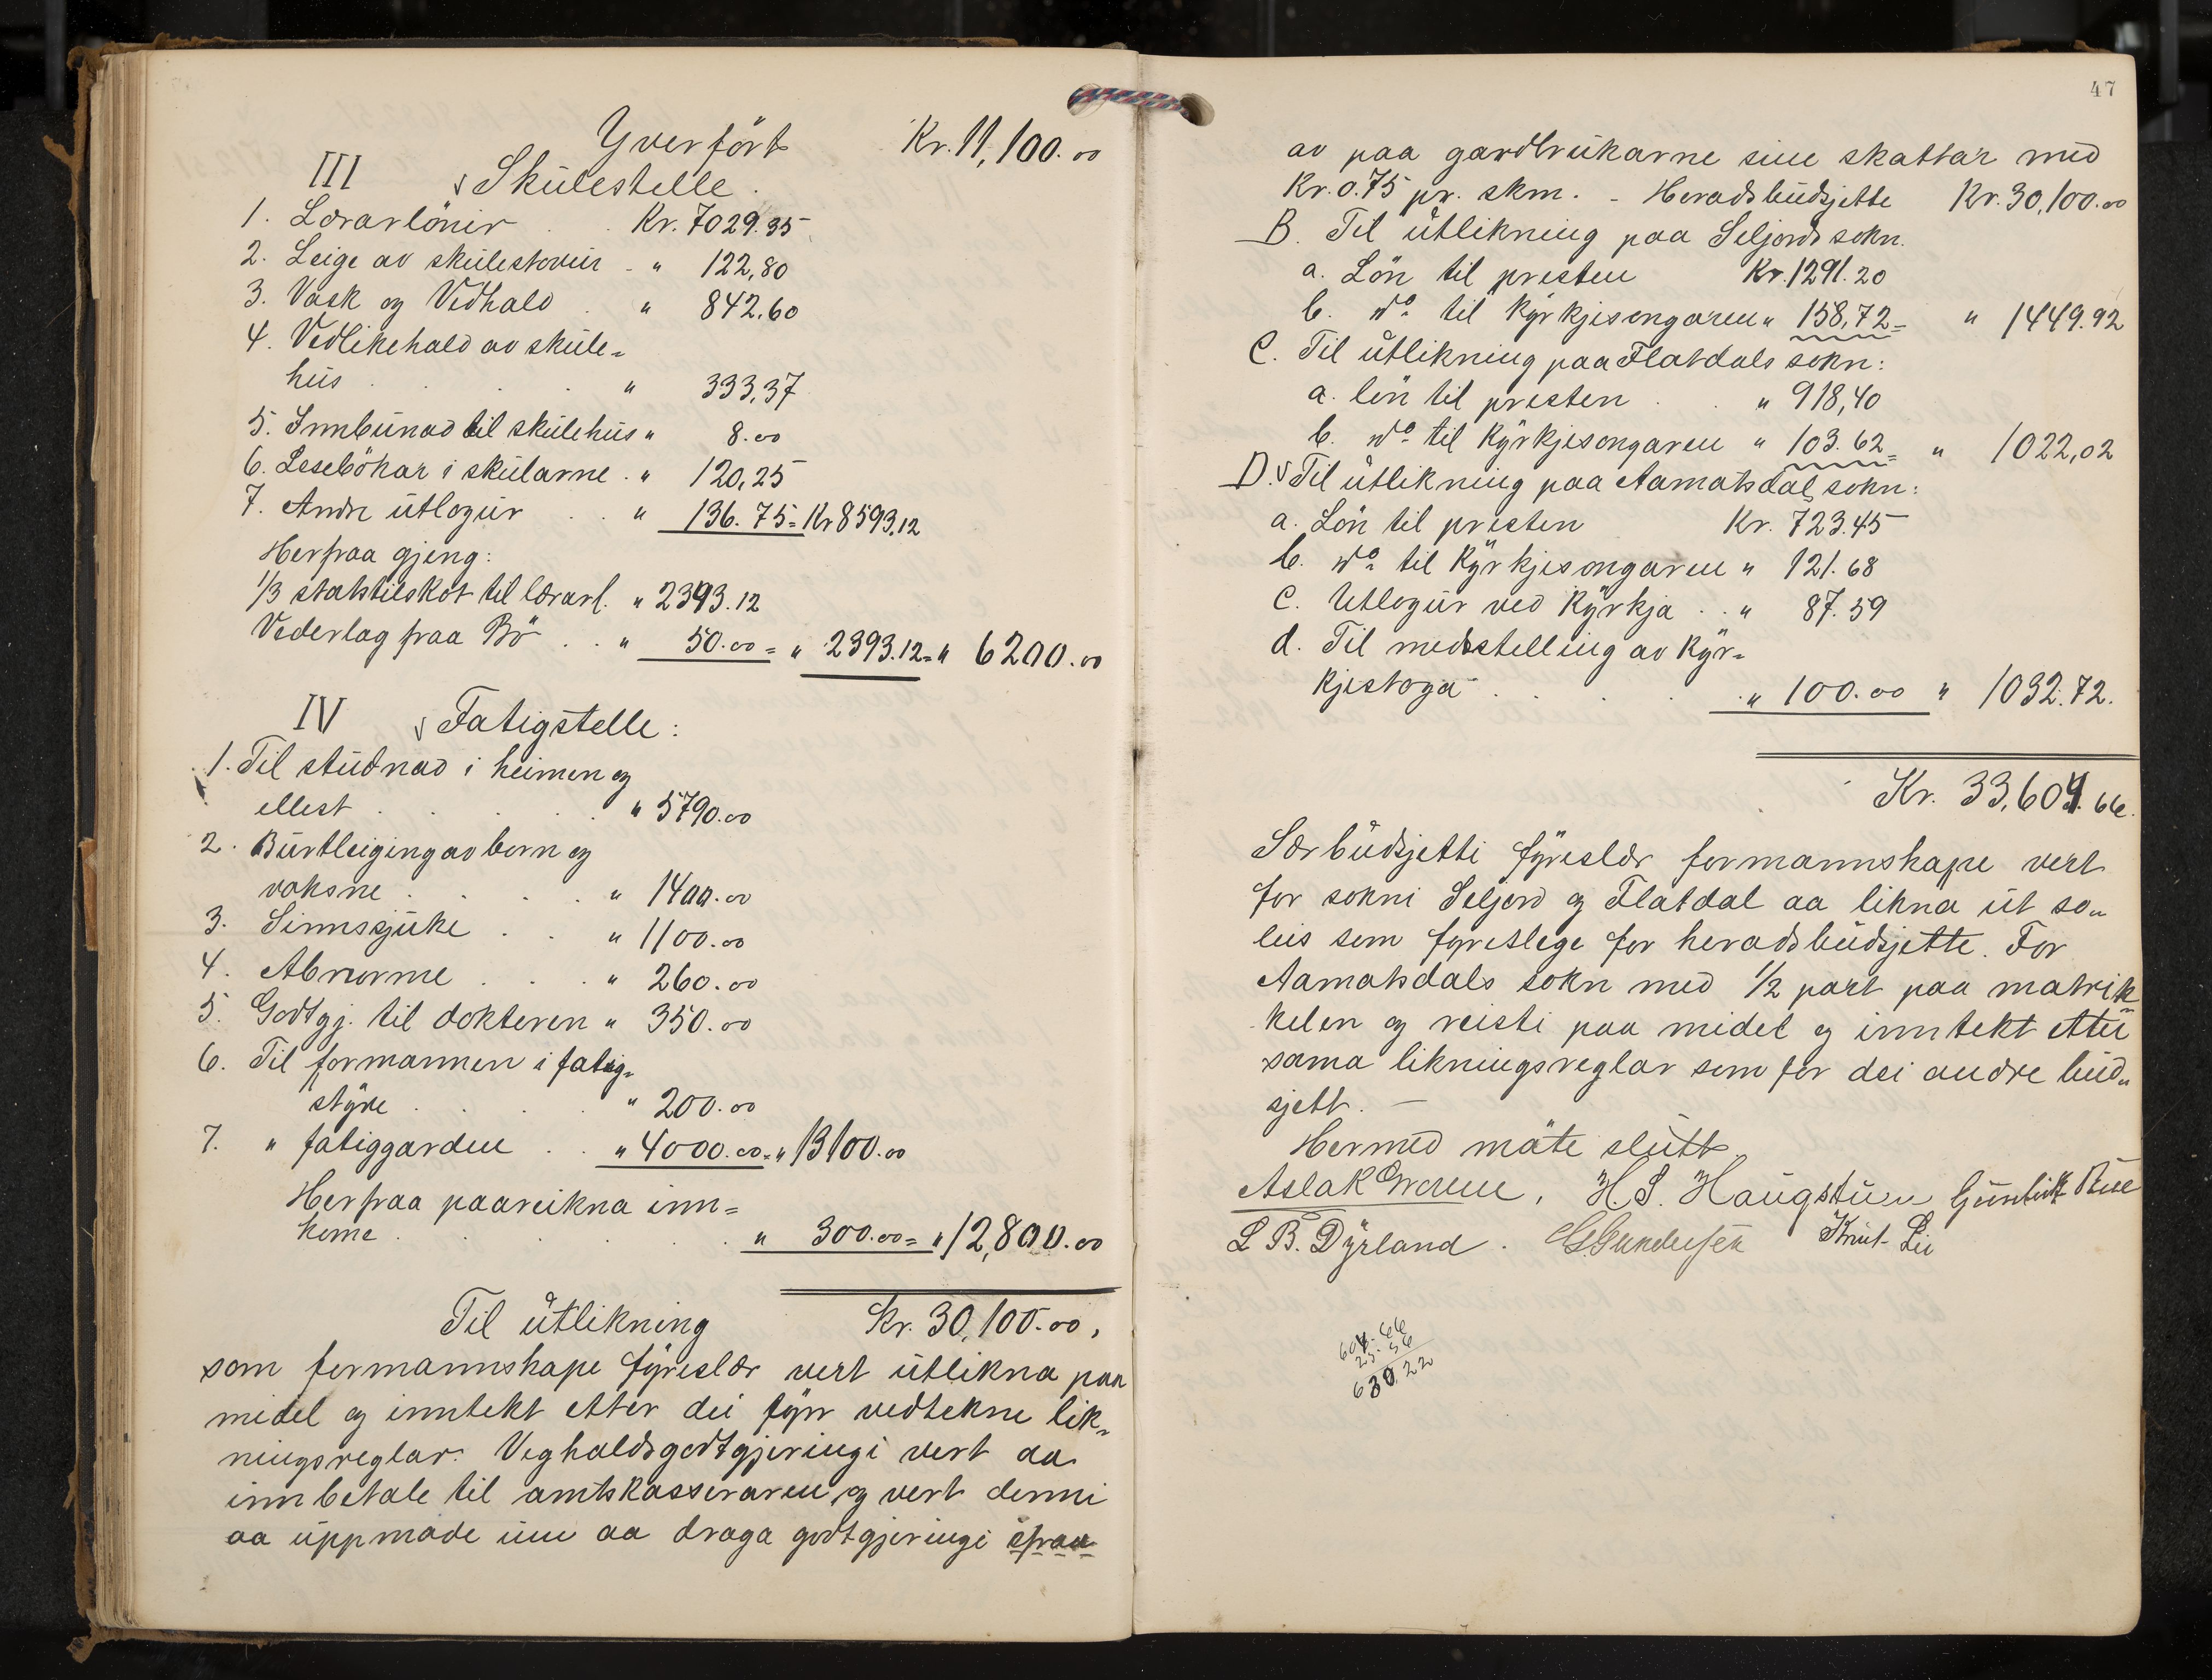 Yverfört Kr. 11,100.00
III Skulestelle.
1. Lærarlönir . . Kr. 7029.35
2. Leige av skulestovur - " 122,80
3. Vask og Vedhald . " 842.60
4. Vedlikehald av skule=
hus . . . " 333,37
5. Innbunad til skulehus " 8.00
6. Lesebökar i skularne . " 120,25
7. Andre utlogur . . " 136.75 = Kr 8593,12
Herfraa gjeng:
1/3 statstilskot til lærarl. " 2343.12
Vederlag fraa Bö . . " 50.00 = " 2393.12 = " 6200.00
IV Fatigstelle:
1. Til studnad i heimen og
ellest . . . . . " 5790.00
2. Burtleiging av born og
vaksne . . . . " 1400.00
3. Sinnssjuke . . " 1100.00
4. Abnorme . . . " 260.00
5. Godtgj. til dokteren " 350.00
6. Til formannen i fatig=
styre . . . . " 200.00
7. " fatiggarden . . " 4000.00 = " 13100.00
Herfraa paareikna inn=
kome . . . . . . " 300.00 = " 12,800.00
Til utlikning Kr. 30,100.00,
som formannskape fyreslær vert utlikna paa
midel og inntekt etter dei fyrr vedtekne lik=
ningsreglar. Veghaldsgodtgjeringi vert aa
innbetale til amtskasseraren, og vert denni
aa uppmode um aa draga godtgjeringi ifraa
47
av paa gardbrukarne sine skattar med
Kr. 0.75 pr. skm. - Heradsbudsjette Kr. 30,100.00
B. Til utlikning paa Seljords sokn.
a. Lön til presten Kr. 1291.20
b. do til Kyrkjesongaren " 158,72 = " 1449.92
C. Til utlikning paa Flatdals sokn:
a. lön til presten . . " 918,40
b. do til Kyrkjesongaren " 103.62 = " 1022,02
D. Til utlikning paa Aamotsdals sokn:
a. Lön til presten Kr. 723.45
b. do til Kyrkjesongaren " 121.68
c. Utlogur ved Kyrkja . . " 87.59
d. Til medstelling av Kyr=
kjestoga . . . . " 100.00 " 1032.72.
Kr. 33,604.66.
Særbudsjetti fyreslær formannskape vert
for sokni Seljord og Flatdal aa likna ut so=
leis som fyreslege for heradsbudsjette. For
Aamotsdals sokn med 1/2 part paa matrik=
kelen og reisti paa midel og inntekt etter
sama likningsreglar som for dei andre bud=
sjett. —
Hermed möte slutt
Aslak H. S. Haugstun Gunleik
L B. Dyrland. G. Gundersen Knut Lii
604.66
25.56
630.22